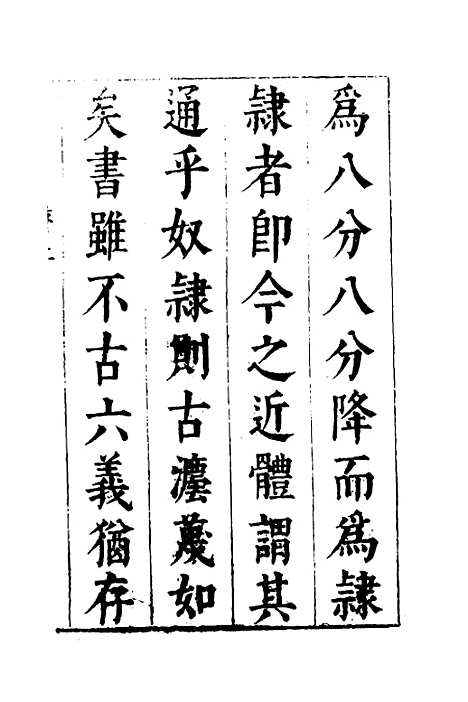 爲八分八分降而爲隸
隸者卽今之近體謂其
通乎奴隸則古灋蔑如
矣書雖不古六義猶存